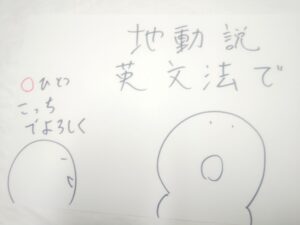 地動説
英文法で
○ひとつ
こっち
でよろしく